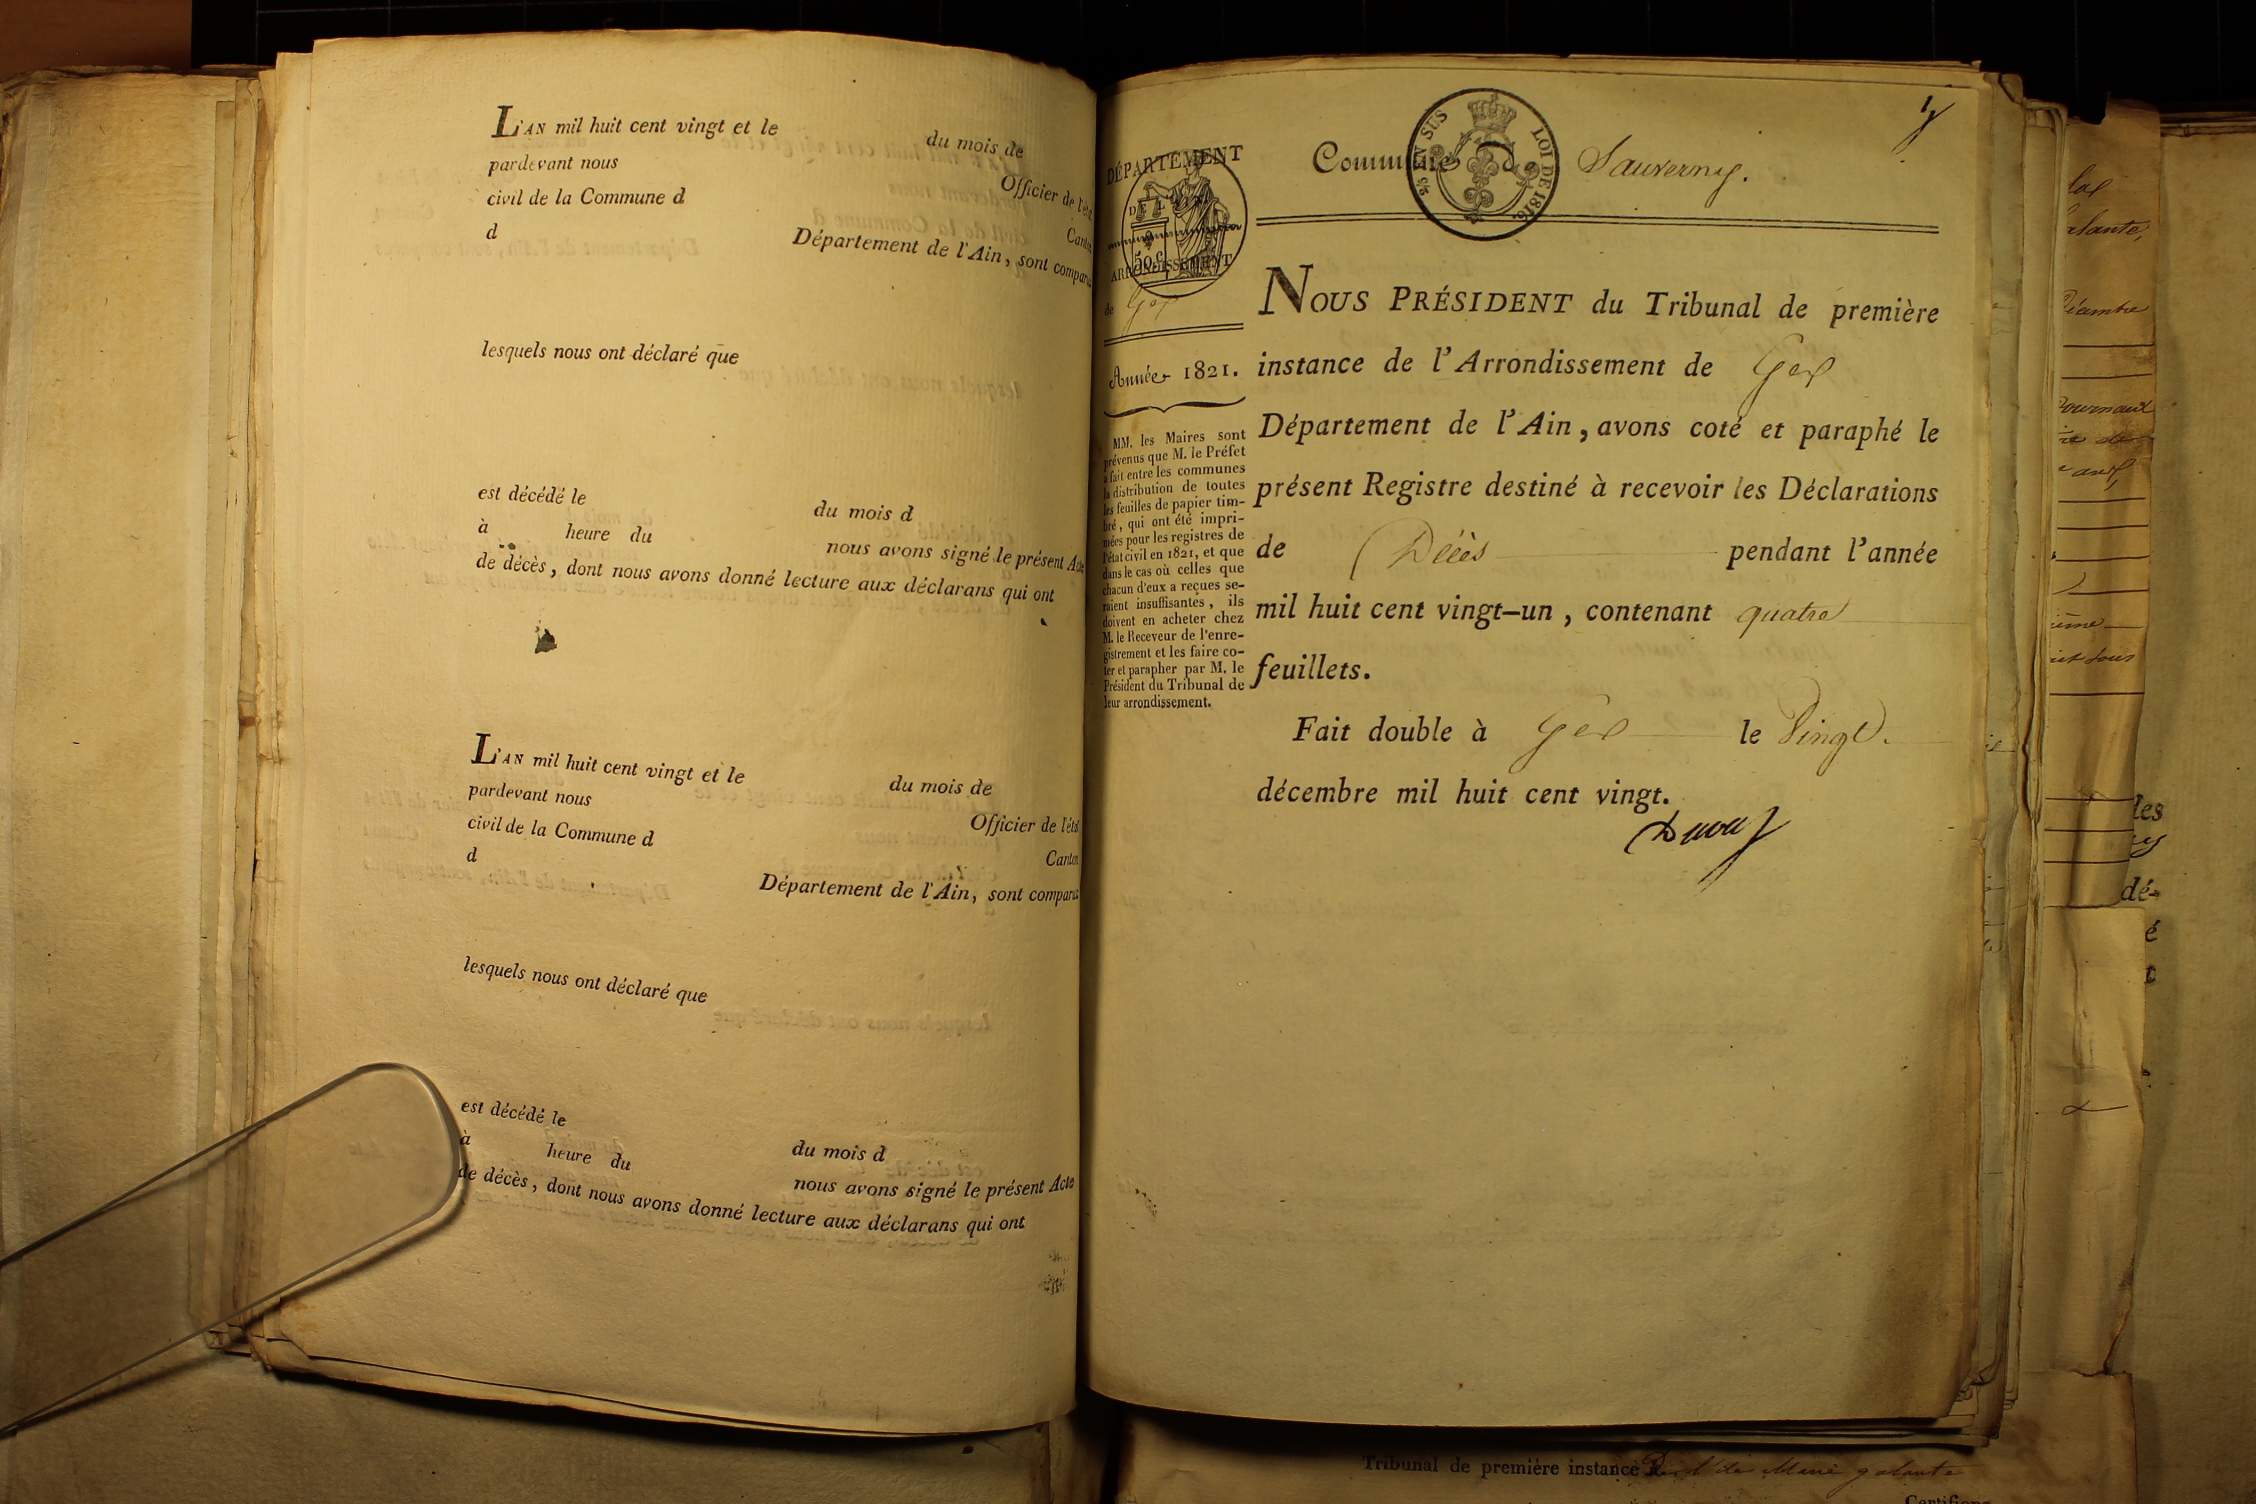 L'AN mil huit cent vingt et le du mois de
pardevant nous Officier de l'éta
civil de la Commune d Canton
d Département de l'Ain, sont comparus
lesquels nous ont déclaré que
est décédé le du mois d
à heure du nous avons signé le présent Acte
de décès, dont nous avons donné lecture aux déclarans qui ont
L'AN mil huit cent vingt et le du mois de
pardevant nous Officier de l'état
civil de la Commune d Canton
d Département de l'Ain, sont comparus
lesquels nous ont déclaré que
est décédé le du mois d
à heure du nous avons signé le présent Acte
de décès, dont nous avons donné lecture aux déclarans qui ont
DÉPARTEMENT
DE L'AIN
50 c.
ARRONDISSEMENT
de Gex
Année 1821.
MM. les Maires sont
prévenus que M. le Préfet
a fait entre les communes
la distribution de toutes
les feuilles de papier tim-
bré, qui ont été impri-
mées pour les registres de
l'état civil en 1821, et que
dans le cas où celles que
chacun d'eux a reçues se-
raient insuffisantes, ils
doivent en acheter chez
M. le Receveur de l'enre-
gistrement et les faire co-
ter et parapher par M. le
Président du Tribunal de
leur arrondissement.
Commune d Sauverny.
EN SUS LOI DE 1816.
NOUS PRÉSIDENT du Tribunal de première
instance de l'Arrondissement de Gex
Département de l'Ain, avons coté et paraphé le
présent Registre destiné à recevoir les Déclarations
de Décès pendant l'année
mil huit cent vingt-un, contenant quatre
feuillets.
Fait double à Gex le Vingt.
décembre mil huit cent vingt.
Tribunal de première instance